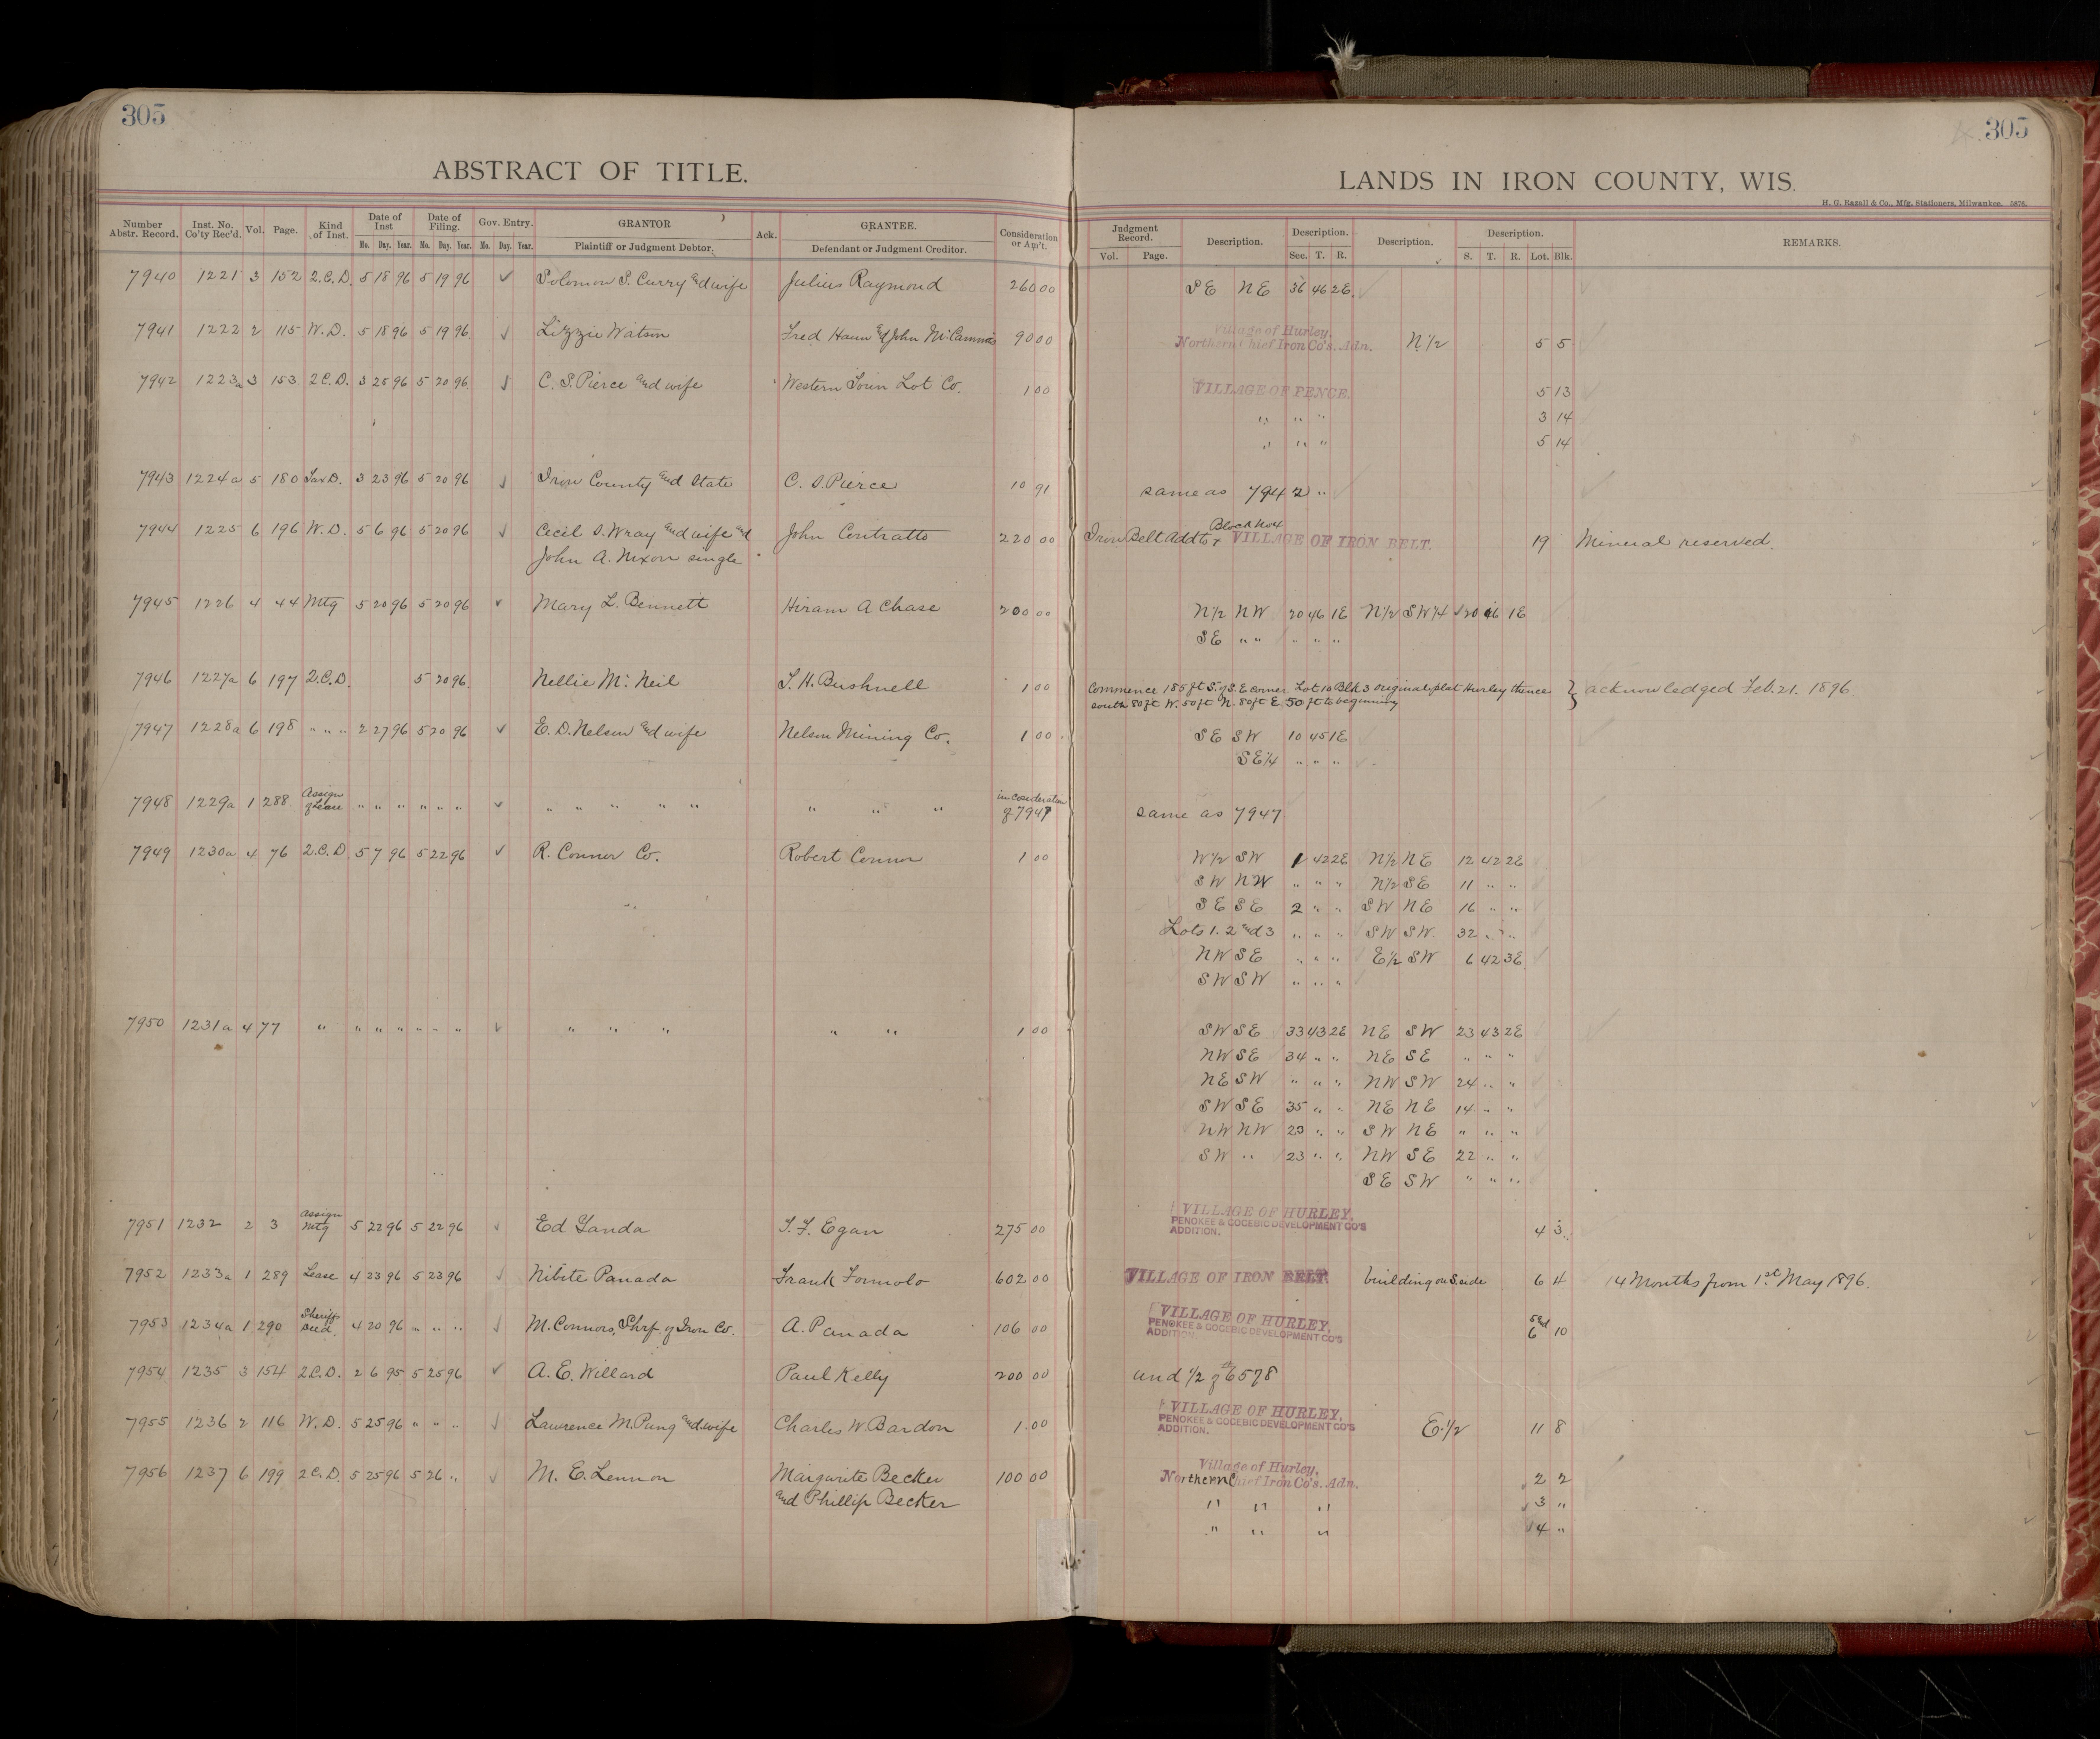 305
ABSTRACT OF TITLE.
Number Abstr. Record. Inst. No. Co'ty Rec'd. Vol. Page. Kind of Inst. Date of Inst Mo. Day. Year. Date of Filing. Mo. Day. Year. Gov. Entry. Mo. Day. Year. GRANTOR Plaintiff or Judgment Debtor. Ack. GRANTEE. Defendant or Judgment Creditor. Consideration or Am't.
7940 1221 3 152 2.C.D. 5 18 96 5 19 96 ✓ Solomon S. Curry and wife Julius Raymond 260 00
7941 1222 2 115 W.D. 5 18 96 5 19 96 ✓ Lizzie Watson Fred Haun and John 90 00
7942 1223a 3 153 2C.D. 3 25 96 5 20 96 ✓ C. S. Pierce and wife Western Town Lot Co. 1 00
7943 1224a 5 180 Tax D. 3 23 96 5 20 96 ✓ Iron County and State C. S. Pierce 10 91
7944 1225 6 196 W.D. 5 6 96 5 20 96 ✓ Cecil D. Wray and wife and John Contratto 220 00
John A. Nixon single
7945 1226 4 44 Mtg 5 20 96 5 20 96 ✓ Mary L. Bennett Hiram A Chase 200 00
7946 1227a 6 197 2.C.D. 5 20 96 Nellie Mc Neil T. H. Bushnell 1 00
7947 1228a 6 198 " " " 2 27 96 5 20 96 ✓ E. D. Nelson and wife Nelson Mining Co. 1 00
7948 1229a 1 288 Assign of Lease " " " " " " ✓ " " " " " " " " in cosideration of 7947
7949 1230a 4 76 2.C.D. 5 7 96 5 22 96 ✓ R. Connor Co. Robert Connor 1 00
7950 1231a 4 77 " " " " " " " ✓ " " " " " 1 00
7951 1232 2 3 assign mtg 5 22 96 5 22 96 ✓ Ed Landa T. F. Egan 275 00
7952 1233a 1 289 Lease 4 23 96 5 23 96 ✓ Nibite Panada Frank Formolo 602 00
7953 1234a 1 290 Sheriffs Deed 4 20 96 " " " ✓ M. Connors, Shrf. of Iron Co. A. Panada 106 00
7954 1235 3 154 2C.D. 2 6 95 5 25 96 ✓ A. E. Willard Paul Kelly 200 00
7955 1236 2 116 W.D. 5 25 96 " " " ✓ Lawrence M. Pung and wife Charles W. Bardon 1.00
7956 1237 6 199 2C.D. 5 25 96 5 26 " ✓ M. E. Lennon Margurite Becker 100 00
and Phillip Becker
305
LANDS IN IRON COUNTY, WIS.
H. G. Razall & Co., Mfg. Stationers, Milwaukee. 5876.
Judgment Record. Vol. Page. Description. Description. Sec. T. R. Description. Description. S. T. R. Lot. Blk. REMARKS.
SE NE 36 46 2E
Village of Hurley,
Northern Chief Iron Co's. Adn. N 1/2 5 5
VILLAGE OF PENCE. 5 13
" " " 3 14
" " " 5 14
same as 7942 "
Block No 4
Iron Belt Add to VILLAGE OF IRON BELT. 19 Mineral reserved.
N 1/2 NW 20 46 1E N 1/2 SW 1/4 20 46 1E
SE " " " " "
Commence 185 ft S. of S. E corner Lot 10 Blk 3 original plat Hurley thence } acknowledged Feb. 21. 1896
south 80 ft W. 50 ft N. 80 ft E 50 ft to beginning
SE SW 10 45 1E
SE 1/4 " " "
same as 7947
W 1/2 SW 1 42 2E N 1/2 NE 12 42 2E
SW NW " " " N 1/2 SE 11 " "
SE SE 2 " " SW NE 16 " "
Lots 1. 2 and 3 " " " SW SW 32 " "
NW SE " " " E 1/2 SW 6 42 3E
SW SW " " "
SW SE 33 43 2E NE SW 23 43 2E
NW SE 34 " " NE SE " " "
NE SW " " " NW SW 24 " "
SW SE 35 " " NE NE 14 " "
NW NW 23 " " SW NE " " "
SW " 23 " " NW SE 22 " "
SE SW " " "
VILLAGE OF HURLEY,
PENOKEE & GOGEBIC DEVELOPMENT CO'S
ADDITION. 4 3
VILLAGE OF IRON BELT. building on S. side 6 4 14 Months from 1st May 1896.
VILLAGE OF HURLEY,
PENOKEE & GOGEBIC DEVELOPMENT CO'S 5 and
ADDITION. 6 10
und 1/2 of 6578
VILLAGE OF HURLEY,
PENOKEE & GOGEBIC DEVELOPMENT CO'S
ADDITION. E 1/2 11 8
Village of Hurley,
Northern Chief Iron Co's. Adn. 2 2
" " " 3 "
" " " 4 "